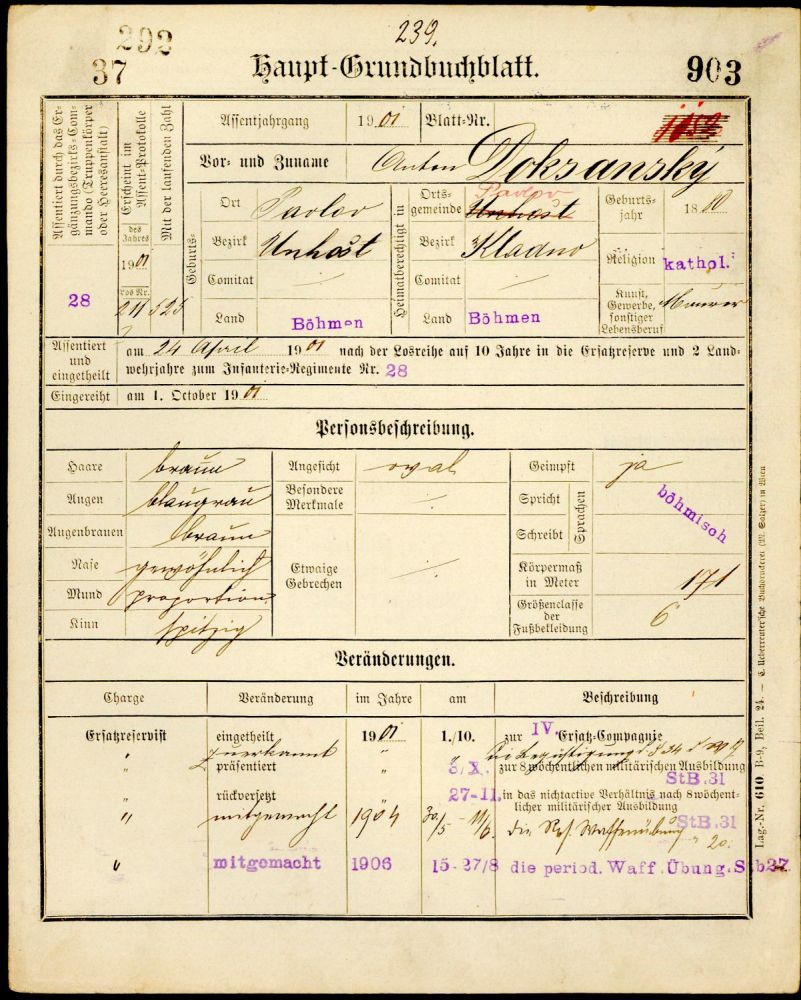 292
239.
37
Haupt-Grundbuchblatt.
903
Assentiert durch das Ergänzungsbezirks-Commando (Truppenkörper oder Heeresanstalt)
28
Erscheint im Assent-Protokolle
des Jahres
1901
Los Nr.
211
Mit der laufenden Zahl
525
Assentjahrgang 1901 Blatt-Nr.
Vor- und Zuname Anton Doksanský
Geburts-
Ort Pavlov
Bezirk Unhošt
Comitat ./.
Land Böhmen
Heimatberechtigt in
Ortsgemeinde Unhošt Pavlov
Bezirk Kladno
Comitat ./.
Land Böhmen
Geburtsjahr 1880
Religion kathol.
Kunst, Gewerbe, sonstiger Lebensberuf Maurer
Assentiert und eingetheilt
am 24 April 1901 nach der Losreihe auf 10 Jahre in die Ersatzreserve und 2 Land-
wehrjahre zum Infanterie-Regimente Nr. 28
Eingereiht am 1. October 1901
Personsbeschreibung.
Haare braun
Augen blaugrau
Augenbrauen braun
Nase gewöhnlich
Mund proportion.
Kinn spitzig
Angesicht oval
Besondere Merkmale ./.
Etwaige Gebrechen ./.
Geimpft ja
Spricht
Schreibt
Sprachen
böhmisch
Körpermaß in Meter 171
Größenclasse der Fußbekleidung 6
Veränderungen.
Charge Veränderung im Jahre am Beschreibung
Ersatzreservist eingetheilt 1901 1./10. zur IV. Ersatz-Compagnie
" zuerkannt " " die Begünstigung d. § 34 d. W G
" präsentiert " 3/X. zur 8 wöchentlichen militärischen Ausbildung
StB.31
" rückversetzt 27-11. in das nichtactive Verhältnis nach 8 wöchent-
licher militärischer Ausbildung
StB.31
" mitgemacht 1904 30/5 - 11/6 die Res. Waffenübung " 20.
" mitgemacht 1906 15-27/8 die period. Waff. Übung. Stb27.
Lag.-Nr. 610. B-9, Beil. 24. — C. Ueberreuter'sche Buchdruckerei (M. Salzer) in Wien